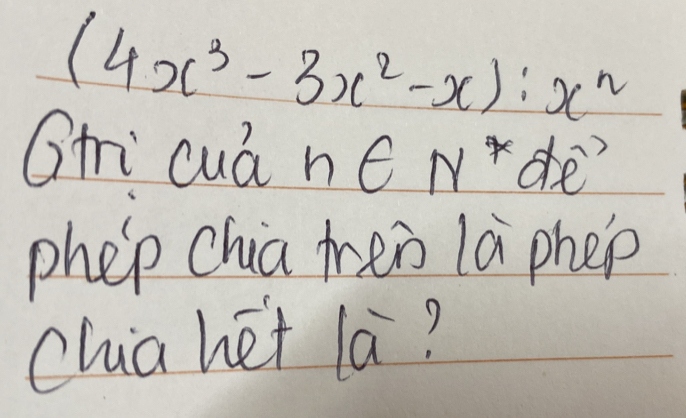 (4x³ - 3x² - x) : xⁿ
Gtrị cuả n ∈ N* để
phép chia trên là phép
chia hết là ?